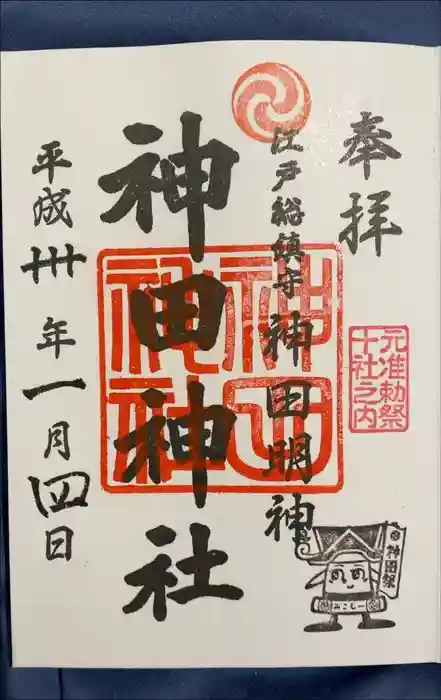 奉拝
元准勅祭
十社之内
江戸総鎮守 神田明神
神田祭
みこしー
神田神社
神田
神社
平成卅年一月四日